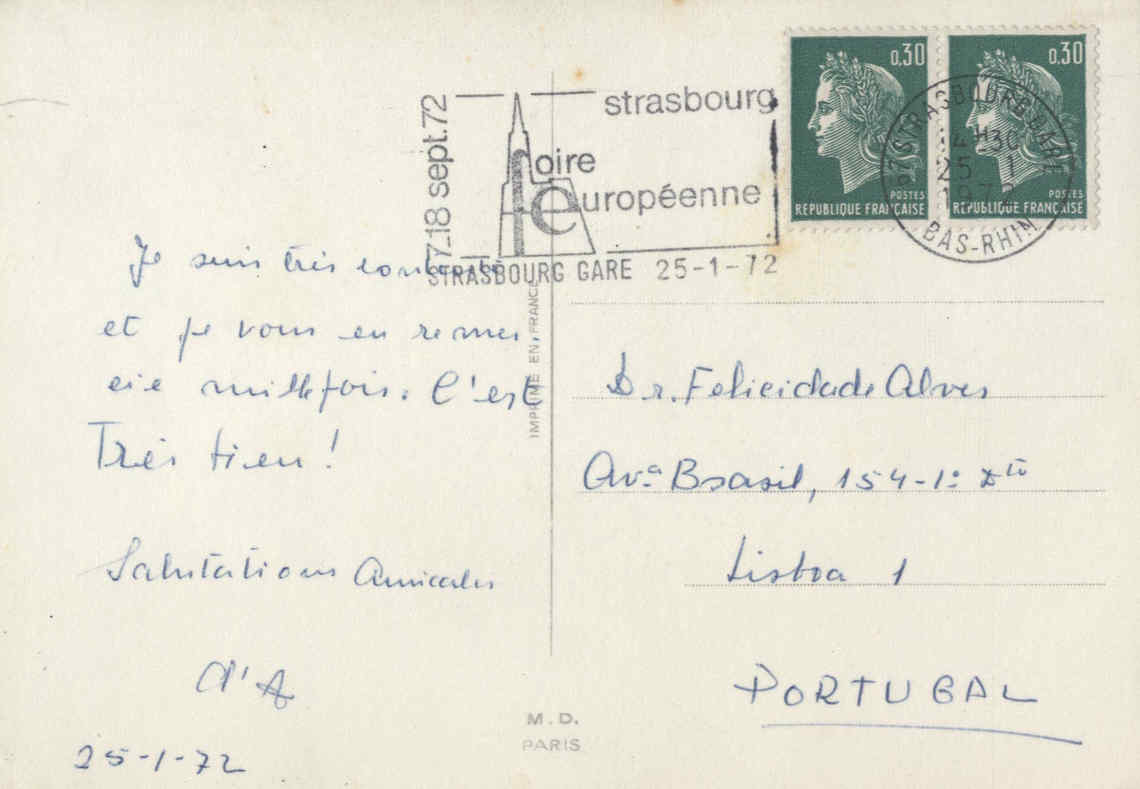 strasbourg
7_18 sept.72
foire
européenne
STRASBOURG GARE 25-1-72
0,30
POSTES
REPUBLIQUE FRANÇAISE
0,30
POSTES
REPUBLIQUE FRANÇAISE
STRASBOURG GARE
14 H30
25 1
1972
BAS-RHIN
Je suis très contente
et je vous en remer,
cie mille fois. C'est
Très bien!
Salutations Amicales
d'A
25-1-72
IMPRIMÉ EN FRANCE
M.D.
PARIS
Dr. Felicidade Alves
Av.ª Brasil, 154-1º Dto
Lisboa 1
PORTUGAL